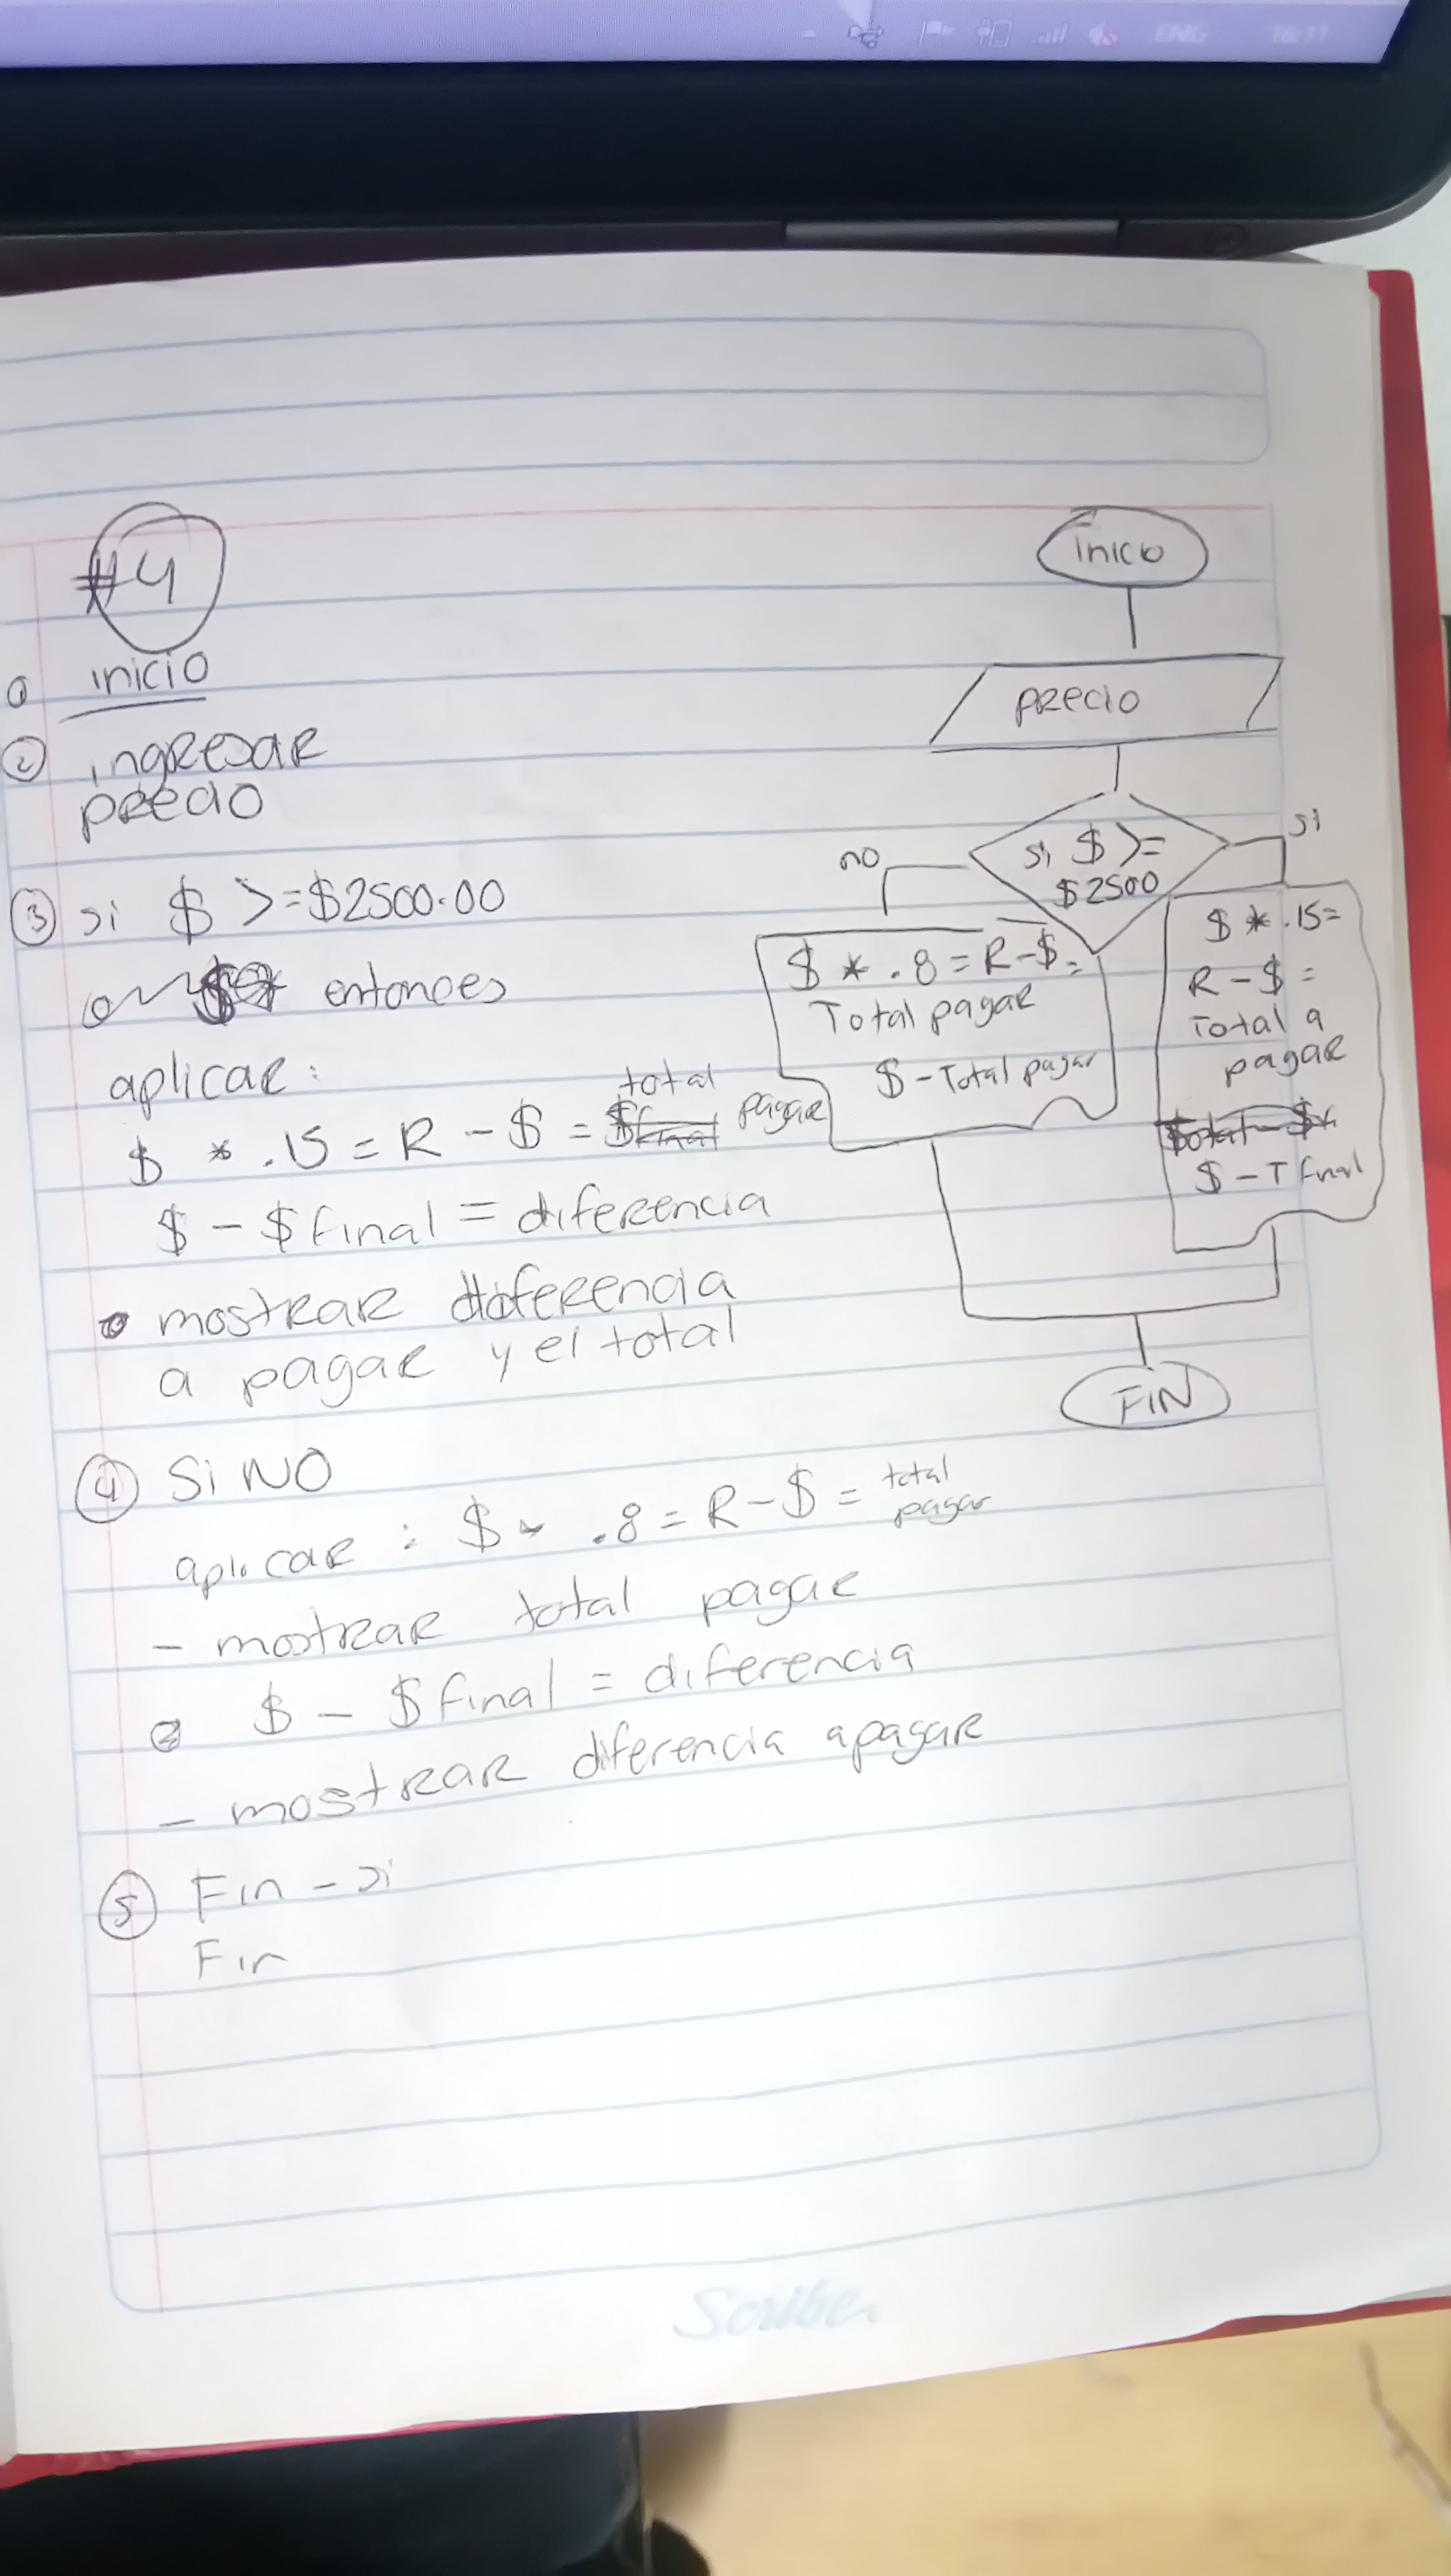 ENG 16:11
#4
1 inicio
2 ingresar
precio
3 si $ >= $2500.00
entonces
aplicar:
$ * .15 = R - $ = total pagar
$ - $ final = diferencia
mostrar diferencia
a pagar y el total
4 Si NO
aplicar : $ * .8 = R - $ = total pagar
- mostrar total pagar
$ - $ final = diferencia
- mostrar diferencia a pagar
5 Fin - si
Fin
inicio
precio
si $ >=
$2500
no
si
$ * .8 = R - $ =
Total pagar
$ - Total pagar
$ * .15 =
R - $ =
Total a
pagar
$ - T final
FIN
Scribe